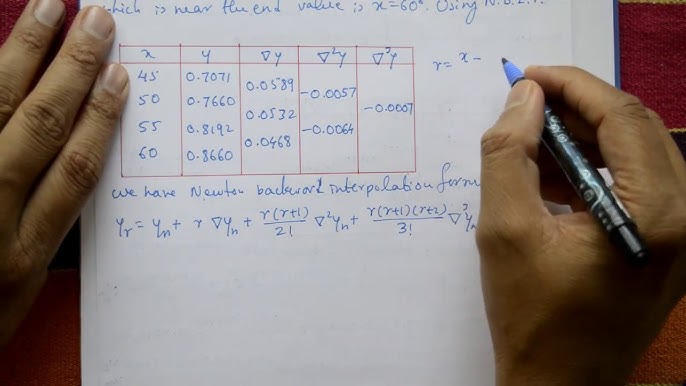 which is near the end value is x=60°. Using N.B.I.F.
x y ∇y ∇²y ∇³y
45 0.7071
0.0589
50 0.7660 -0.0057
0.0532 -0.0007
55 0.8192 -0.0064
0.0468
60 0.8660
r = x -
we have Newton backward interpolation formu
yr = yn + r ∇yn + r(r+1)/2! ∇²yn + r(r+1)(r+2)/3! ∇³yn